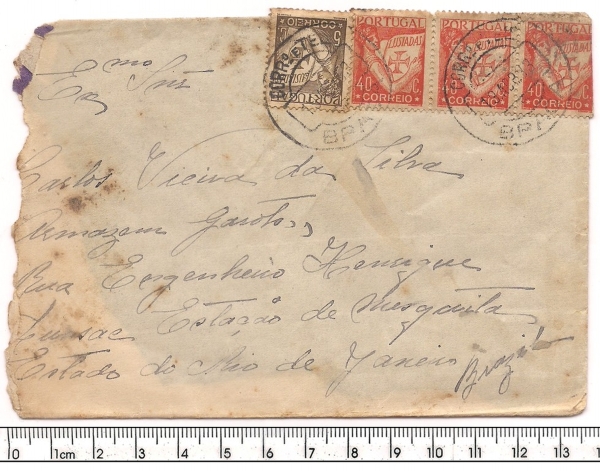 CORREIO 5 LUSIADAS PORTUGAL
PORTUGAL LUSIADAS 40 C CORREIO
PORTUGAL LUSIADAS 40 C CORREIO
PORTUGAL LUSIADAS 40 C CORREIO
Exmo Snr
Carlos Vieira da Silva
Armazem Garoto
Rua Engenheiro Henrique
Lussac Estação de Mesquita
Estado do Rio de Janeiro
Brazil
0 1cm 2 3 4 5 6 7 8 9 10 11 12 13 1